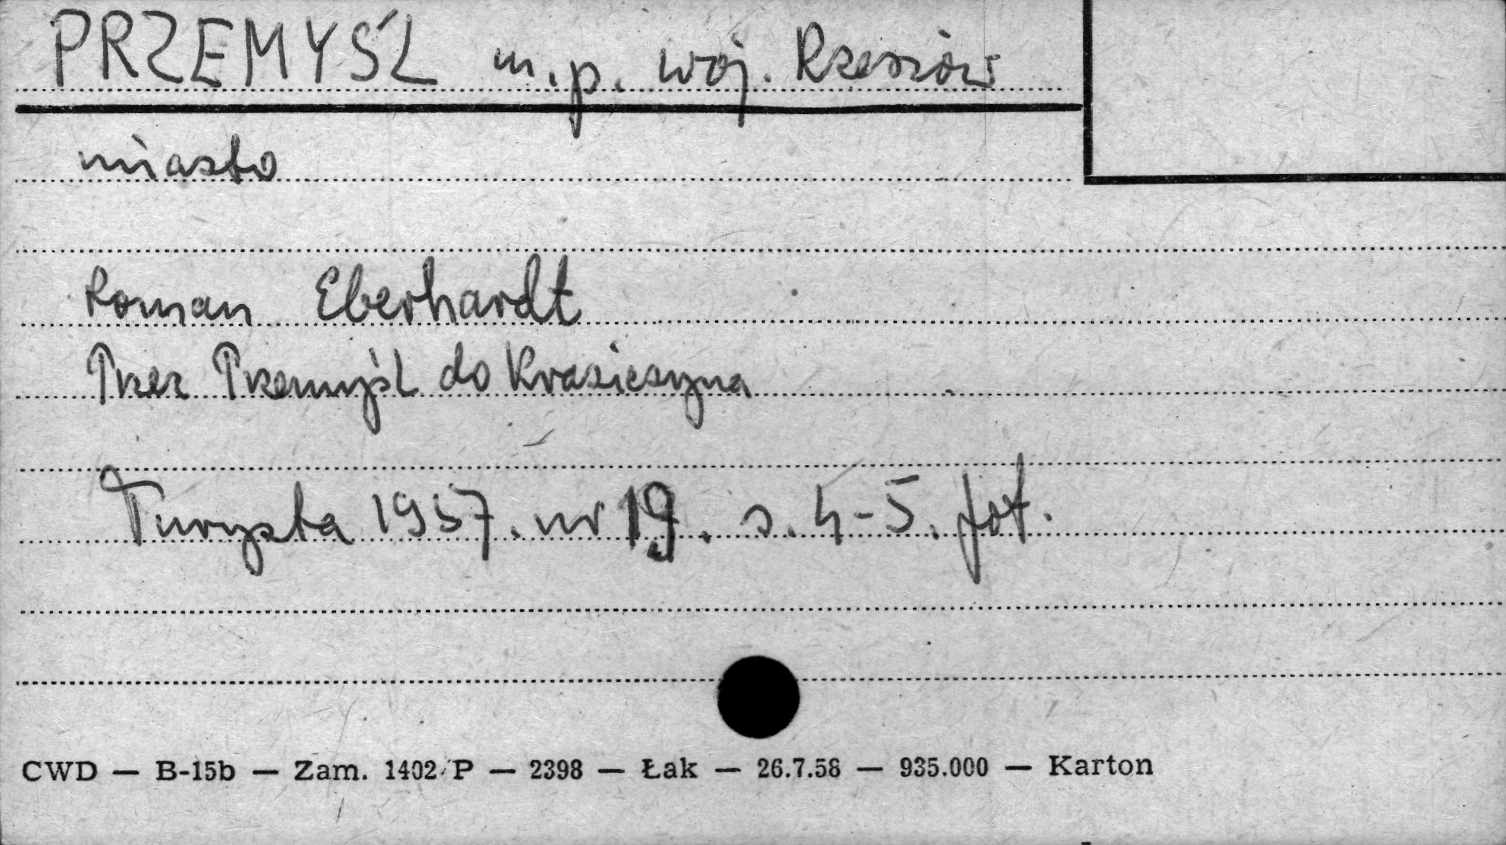 PRZEMYŚL m.p. woj. Rzeszów
miasto
Roman Eberhardt
Przez Przemyśl do Krasiczyna
Turysta 1957. nr 19. s. 4-5. fot.
CWD — B-15b — Zam. 1402/P — 2398 — Łak — 26.7.58 — 935.000 — Karton